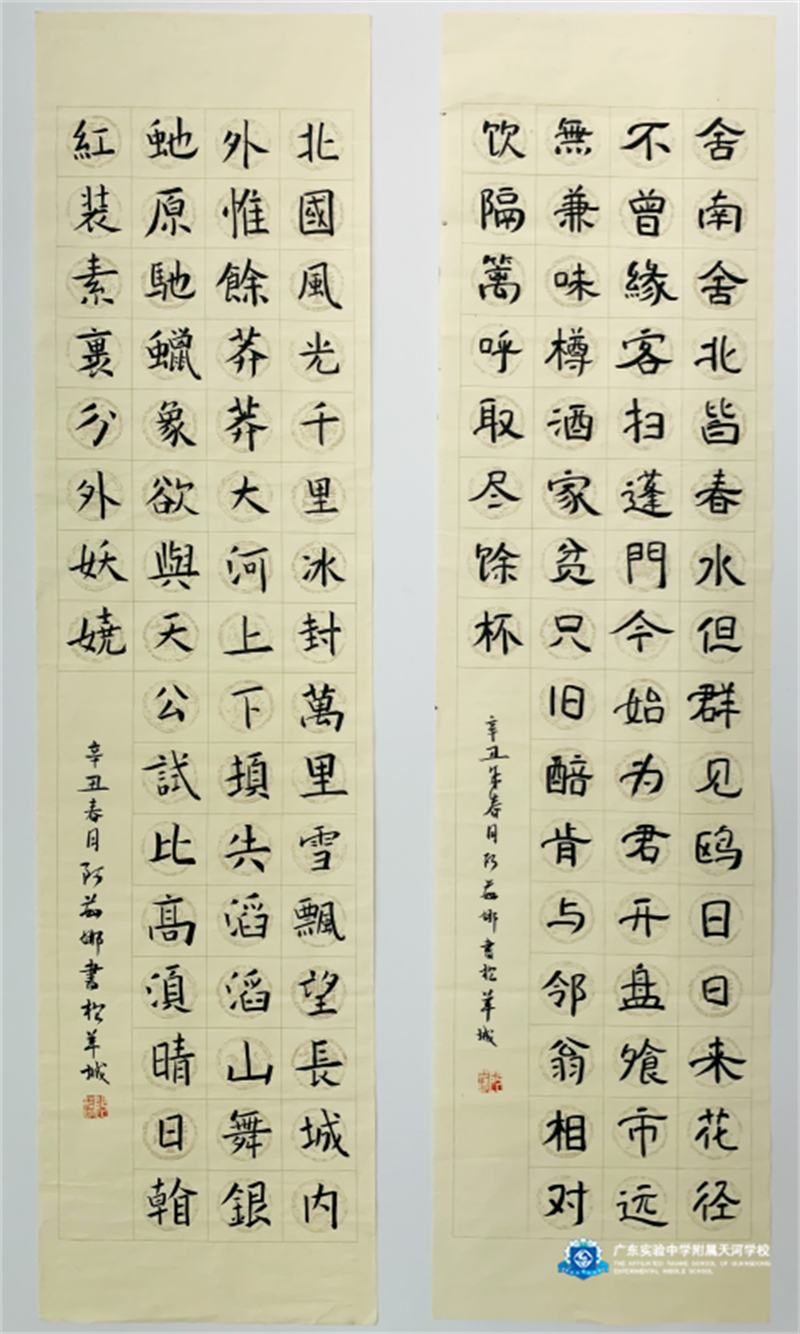 舍南舍北皆春水但群见鸥日日来花径
不曾緣客扫蓬門今始为君开盘飧市远
無兼味樽酒家贫只旧醅肯与邻翁相对
饮隔篱呼取尽馀杯
辛丑年春月阿茹娜書於羊城
北國風光千里冰封萬里雪飄望長城内
外惟餘莽莽大河上下頓失滔滔山舞銀
虵原馳蠟象欲與天公試比高須晴日看
紅装素裹分外妖嬈
辛丑春月阿茹娜書於羊城
广东实验中学附属天河学校
THE AFFILIATED TIANHE SCHOOL OF GUANGDONG
EXPERIMENTAL MIDDLE SCHOOL